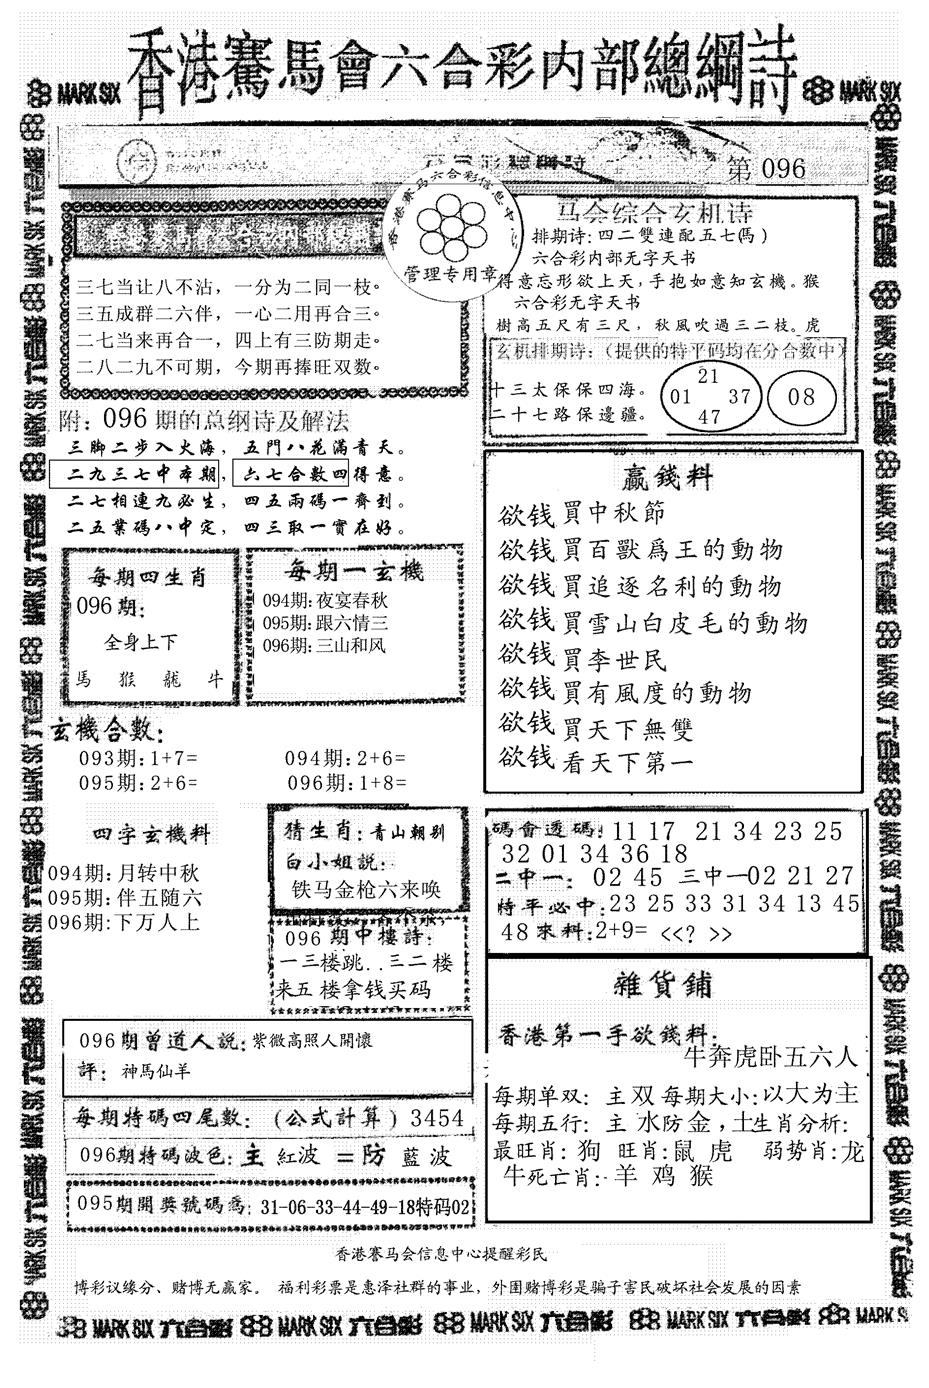 香港賽馬會六合彩内部總綱詩
MARK SIX
MARK SIX
第 096
香港赛马六合彩信息中心
管理专用章
三七当让八不沾，一分为二同一枝。
三五成群二六伴，一心二用再合三。
二七当来再合一，四上有三防期走。
二八二九不可期，今期再捧旺双数。
马会综合玄机诗
排期诗:四二雙連配五七(馬)
六合彩内部无字天书
得意忘形欲上天,手抱如意知玄機。猴
六合彩无字天书
樹高五尺有三尺，秋風吹過三二枝。虎
玄机排期诗:（提供的特平码均在分合数中）
十三太保保四海。
二十七路保邊疆。
21
01 37
47
08
附: 096 期的总纲诗及解法
三脚二步入火海，五門八花滿青天。
二九三七中本期，六七合數四得意。
二七相連九必生，四五兩碼一齊到。
二五業碼八中定，四三取一實在好。
每期四生肖
096期:
全身上下
馬 猴 龍 牛
每期一玄機
094期:夜宴春秋
095期:跟六情三
096期:三山和风
玄機合數:
093期:1+7= 094期:2+6=
095期:2+6= 096期:1+8=
贏錢料
欲钱買中秋節
欲钱買百獸爲王的動物
欲钱買追逐名利的動物
欲钱買雪山白皮毛的動物
欲钱買李世民
欲钱買有風度的動物
欲钱買天下無雙
欲钱看天下第一
四字玄機料
094期:月转中秋
095期:伴五随六
096期:下万人上
猜生肖:青山朝别
白小姐説:
铁马金枪六来唤
096期中樓詩:
一三楼跳..三二楼
来五楼拿钱买码
碼會透碼:11 17 21 34 23 25
32 01 34 36 18
二中一: 02 45 三中一02 21 27
特平必中:23 25 33 31 34 13 45
48來料:2+9= <<? >>
雜貨鋪
香港第一手欲錢料:
牛奔虎卧五六人
每期单双: 主双 每期大小:以大为主
每期五行: 主 水防金,土生肖分析:
最旺肖:狗 旺肖:鼠 虎 弱势肖:龙
牛死亡肖:羊 鸡 猴
096期曾道人説:紫微高照人開懷
評: 神馬仙羊
每期特碼四尾數:(公式計算)3454
096期特碼波色:主 紅波 =防 藍波
095期開獎號碼爲:31-06-33-44-49-18特码02
香港賽马会信息中心提醒彩民
博彩议缘分、赌博无赢家。 福利彩票是惠泽社群的事业，外围赌博彩是骗子害民破坏社会发展的因素
MARK SIX 六合彩 MARK SIX 六合彩 MARK SIX 六合彩 MARK SIX 六合彩 MARK SIX